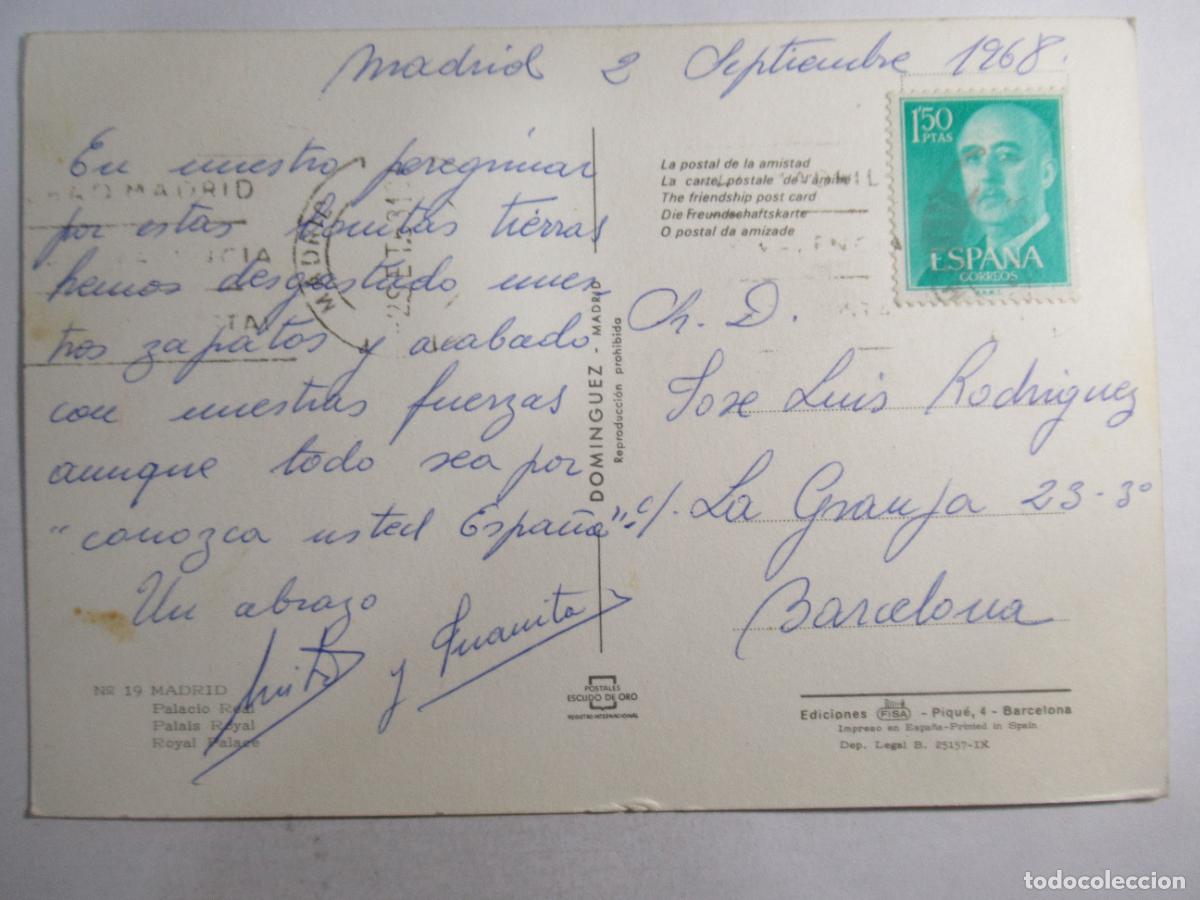 Madrid 2 Septiembre 1968.
En nuestro peregrinar
por estas bonitas tierras
hemos desgastado nues-
tros zapatos y acabado
con nuestras fuerzas
aunque todo sea por
"conozca usted España".
Un abrazo
y Juanita
Nº 19 MADRID
Palacio Real
Palais Royal
Royal Palace
MADRID
MADRID
DOMINGUEZ - MADRID
Reproducción prohibida
POSTALES
ESCUDO DE ORO
REGISTRO INTERNACIONAL
La postal de la amistad
La carte postale de l'amitié
The friendship post card
Die Freundschaftskarte
O postal da amizade
1'50
PTAS
ESPAÑA
CORREOS
D.
Jose Luis Rodriguez
c/. La Granja 23-3º
Barcelona
Ediciones FISA - Piqué, 4 - Barcelona
Impreso en España-Printed in Spain
Dep. Legal B. 25157-IX
todocoleccion